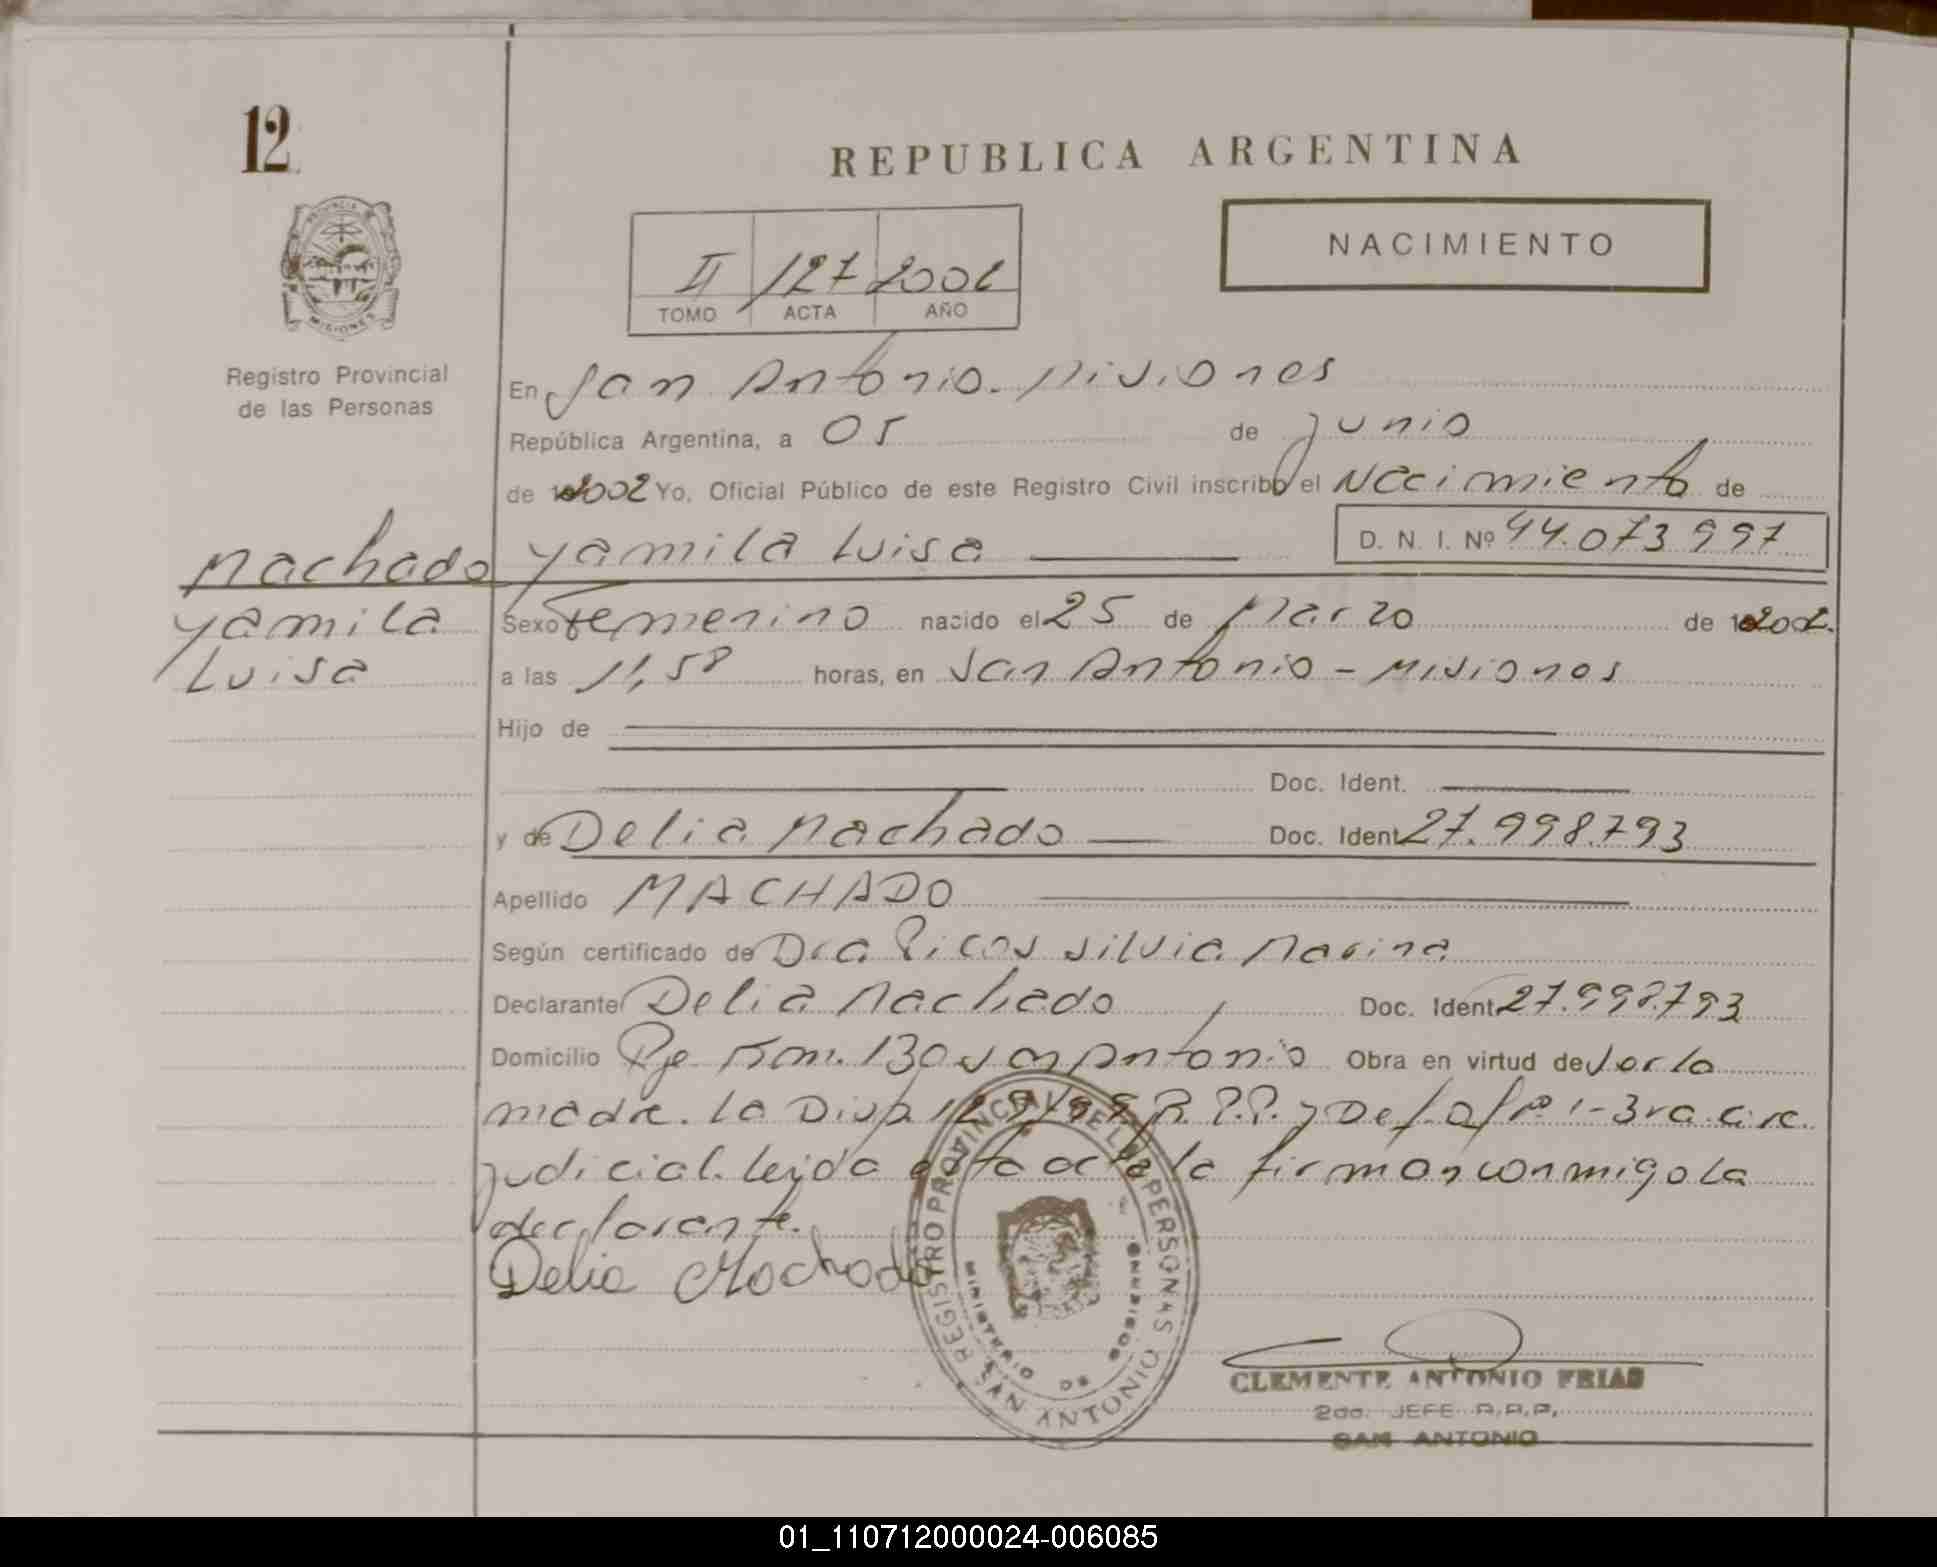 12
REPUBLICA ARGENTINA
PROVINCIA DE
MISIONES
Registro Provincial
de las Personas
NACIMIENTO
II 127 2002
TOMO ACTA AÑO
En San Antonio. Misiones
República Argentina, a 05 de junio
de 2002 Yo, Oficial Público de este Registro Civil inscribo el Nacimiento de
Machado Yamila Luisa D. N. I. Nº 44.073 997
Yamila
Luisa
Sexo Femenino nacido el 25 de Marzo de 2002.
a las 11,58 horas, en San Antonio - Misiones
Hijo de
Doc. Ident.
y de Delia Machado Doc. Ident 27.998.793
Apellido MACHADO
Según certificado de Dra Picos Silvia Marina
Declarante Delia Machado Doc. Ident 27.998.793
Domicilio Pje Km. 130 San Antonio Obra en virtud de ser la
madre. la Disp. 129/99. R.P.P. y Def. Of. Nº 1-3ra circ.
judicial. leida esta acta la firman conmigo la
declarante.
Delia Machado
REGISTRO PROVINCIAL DE LAS PERSONAS
MINISTERIO DE GOBIERNO
SAN ANTONIO
CLEMENTE ANTONIO FRIAS
2do. JEFE R.P.P.
SAN ANTONIO
01_110712000024-006085